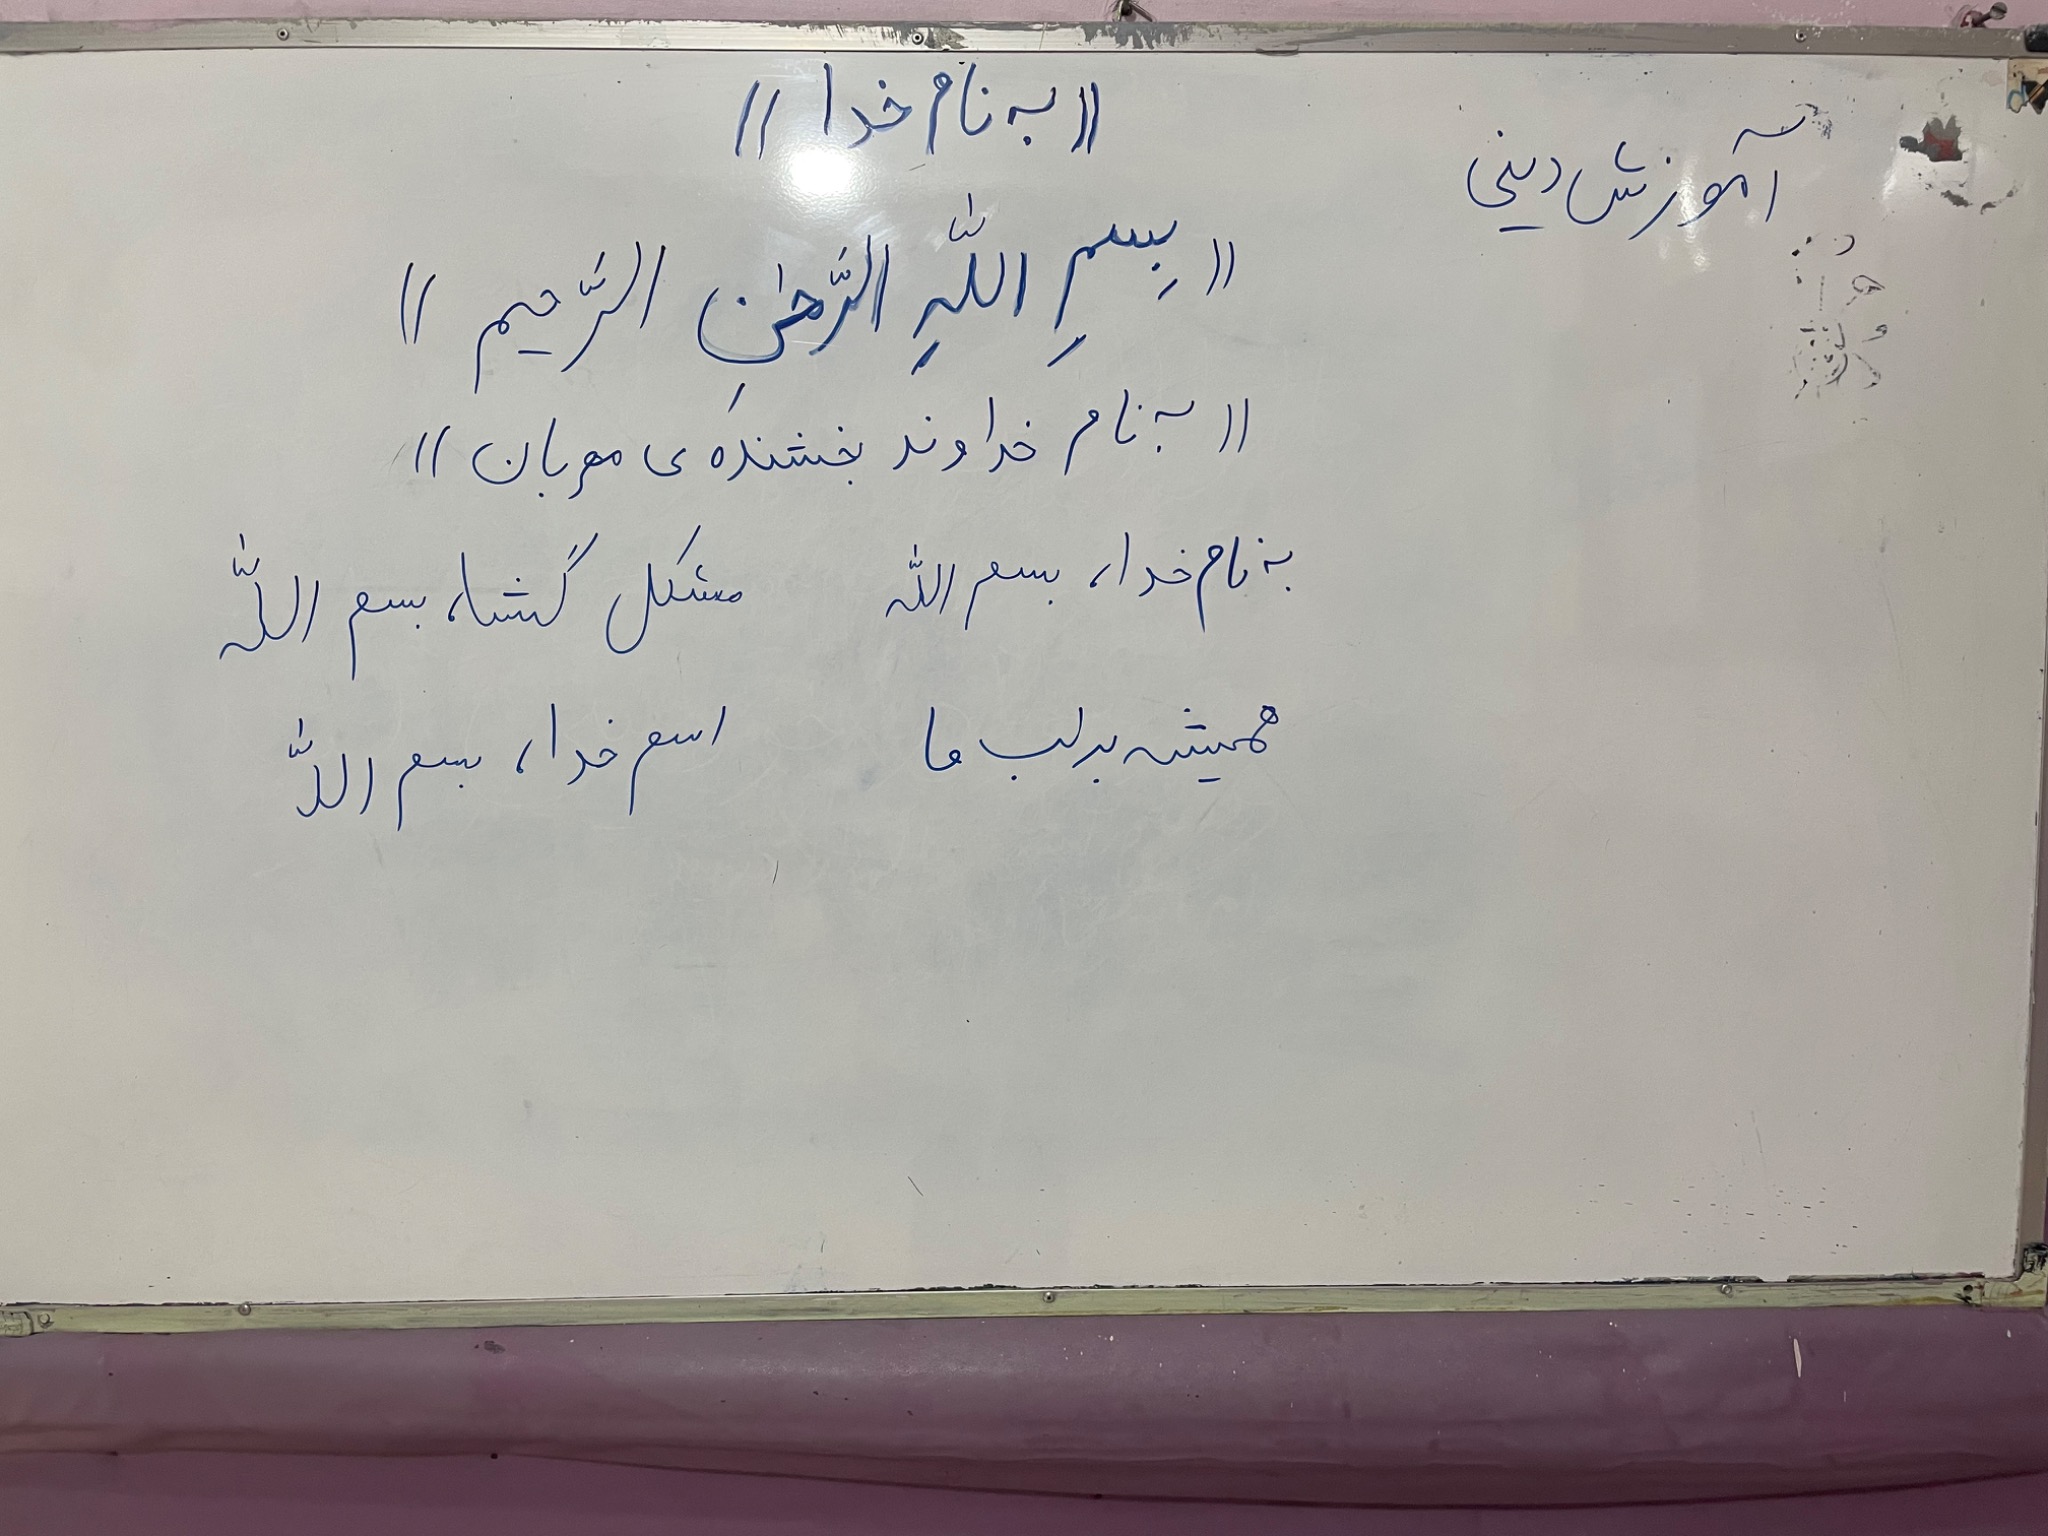 «به نام خدا»
آموزش دینی
«بِسمِ اللّٰهِ الرَّحمٰنِ الرَّحیم»
«به نام خداوند بخشنده‌ی مهربان»
به نام خدا، بسم اللّٰه مشکل گشا، بسم اللّٰه
همیشه بر لب ما اسم خدا، بسم اللّٰه